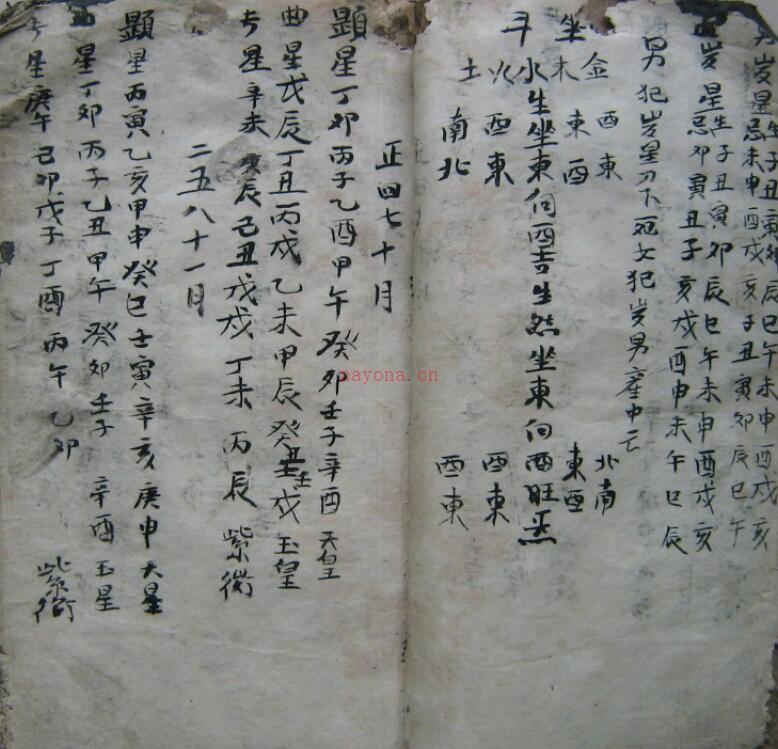 男岁星生子丑寅卯辰巳午未申酉戌亥
忌未申酉戌亥子丑寅卯辰巳午
岁星生子丑寅卯辰巳午未申酉戌亥
忌卯寅丑子亥戌酉申未午巳辰
男犯岁星刀下死女犯岁男產中亡
金 酉東 北南
坐木 東西 東西
斗水生坐東向西吉生然坐東向西旺
火 西東 西東
土 南北 西東
正四七十月
顕星丁卯丙子乙酉甲午癸卯壬子辛酉 天皇
曲星戊辰丁丑丙戌乙未甲辰癸丑壬戌 玉皇
専星辛未庚辰己丑戊戌丁未丙辰 紫微
二五八十一月
顕星丙寅乙亥甲申癸巳壬寅辛亥庚申天星
曲星丁卯丙子乙丑甲午癸卯壬子辛酉玉星
専星庚午己卯戊子丁酉丙午乙卯 紫微
nayona.cn